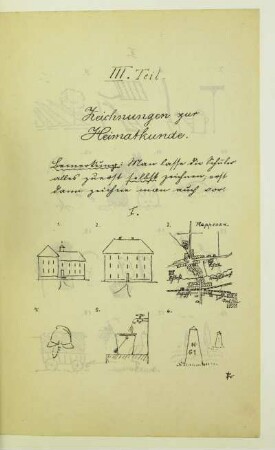 III. Teil.
Zeichnungen zur
Heimatkunde.
Bemerkung: Man lasse die Schüler
alles zuerst selbst zeichnen, erst
dann zeichne man auch vor.
I.
1. 2. 3.
4. 5. 6.
N
61